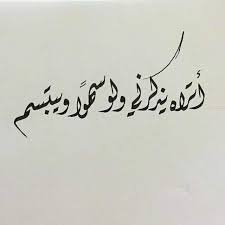 أتراه يذكرني ولو سهوًا ويبتسم